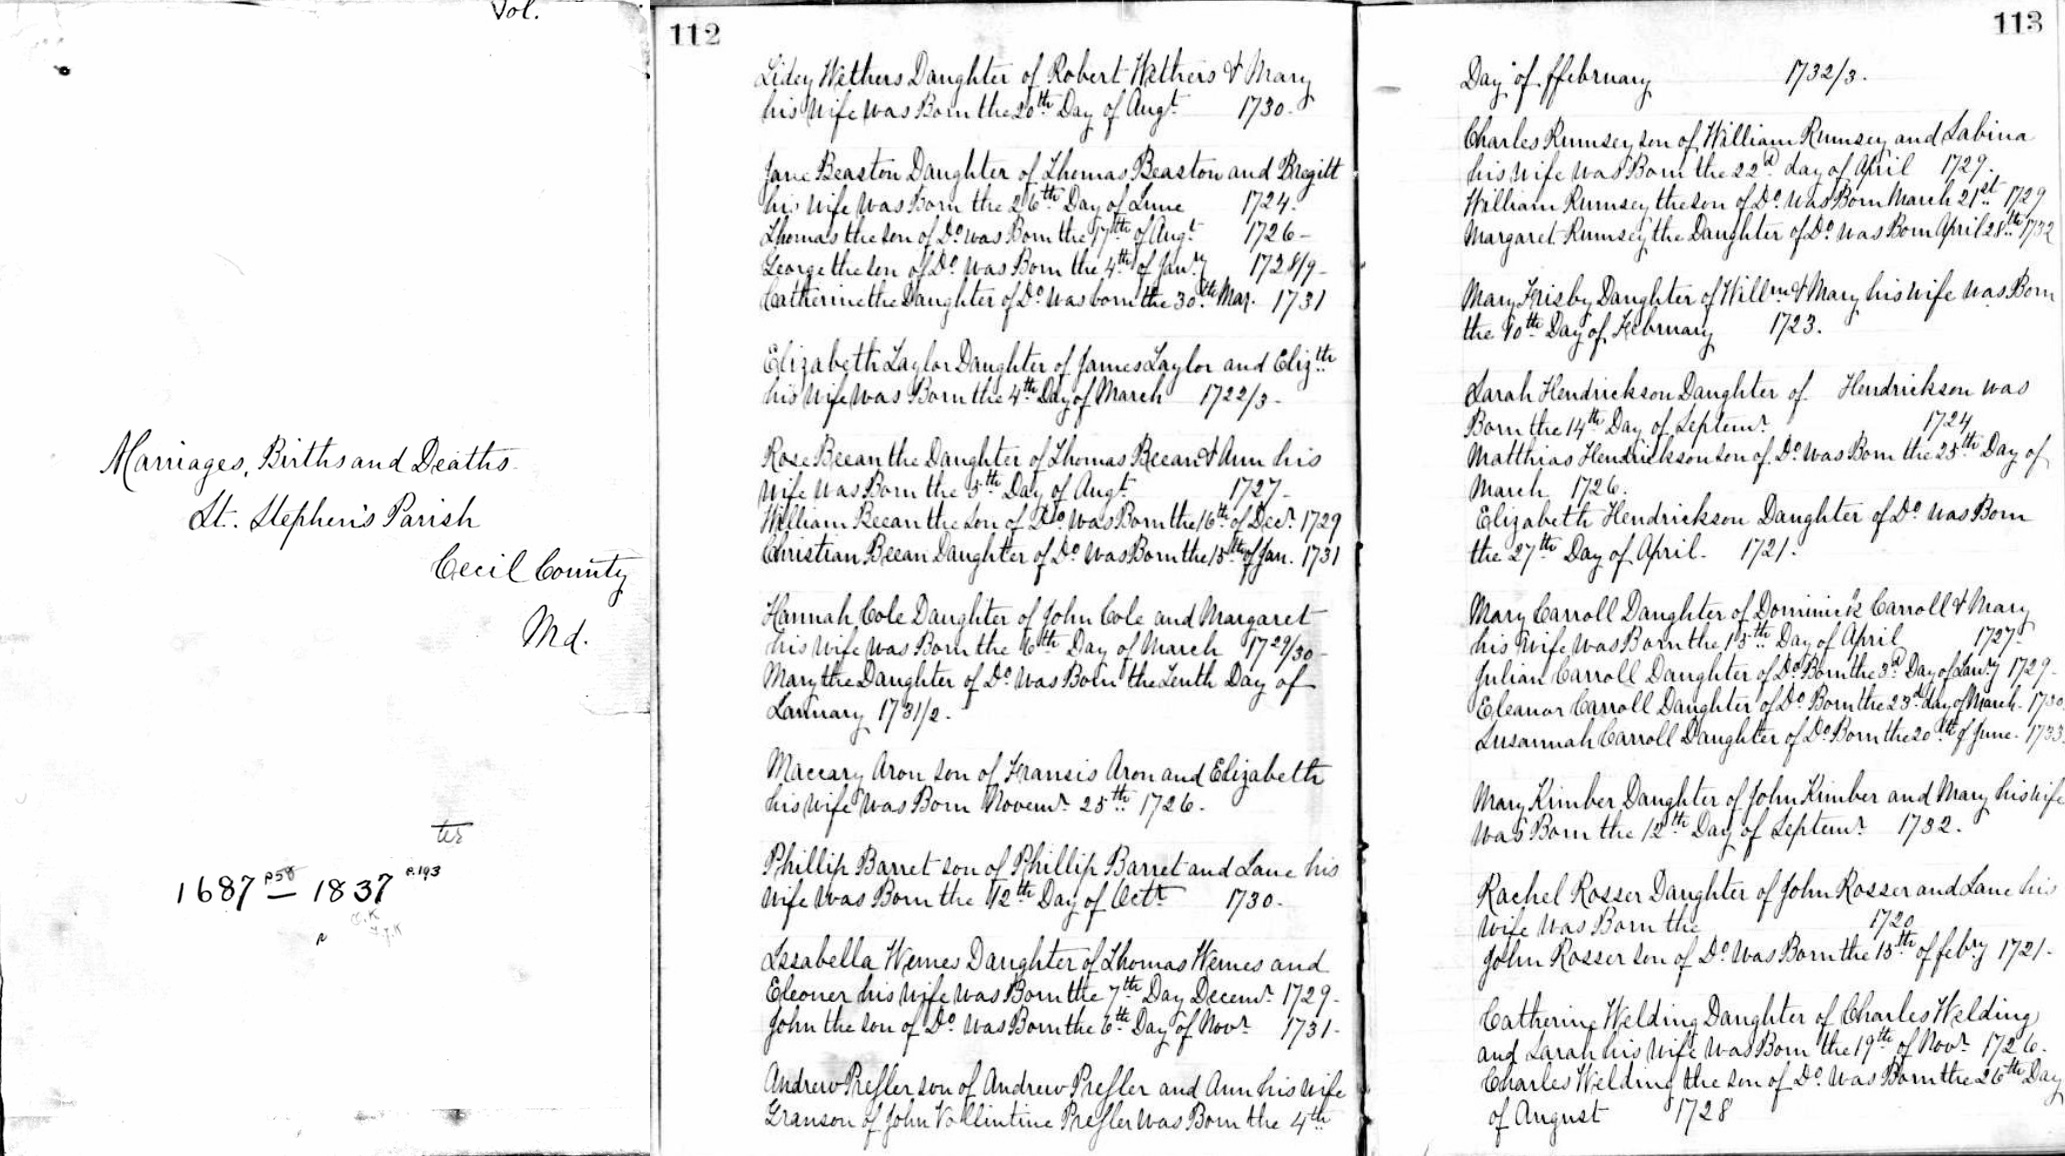 Vol.
Marriages, Births and Deaths.
St. Stephen's Parish
Cecil County
Md.
1687 p58 — 1837 p.193
112
Lidey Wethers Daughter of Robert Wethers & Mary
his Wife was Born the 20th Day of Augt. 1730.
Jane Beaston Daughter of Thomas Beaston and Bregitt
his Wife was Born the 26th Day of June 1724.
Thomas the son of Do. was Born the 17th of Augt. 1726-
George the son of Do. was Born the 4th of Janry 1728/9-
Catherine the Daughter of Do. was born the 30.th Mar. 1731
Elizabeth Taylor Daughter of James Taylor and Elizth
his Wife was Born the 4th Day of March 1722/3-
Rose Becan the Daughter of Thomas Becan & Ann his
Wife was Born the 5th Day of Augt. 1727-
William Becan the son of Do. was Born the 16th of Decr. 1729
Christian Becan Daughter of Do. was Born the 15th of Jan. 1731
Hannah Cole Daughter of John Cole and Margaret
his Wife was Born the 6th Day of March 1729/30-
Mary the Daughter of Do. was Born the Tenth Day of
January 1731/2.
Maccary Aron son of Fransis Aron and Elizabeth
his Wife was Born Novemr. 25th 1726.
Phillip Barret son of Phillip Barret and Jane his
Wife was Born the 12th Day of Octr. 1730.
Issabella Wemes Daughter of Thomas Wemes and
Eleoner his Wife was Born the 7th Day Decemr. 1729-
John the son of Do. was Born the 6th Day of Novr. 1731-
Andrew Presler son of Andrew Presler and Ann his Wife
Granson of John Vollintine Presler was Born the 4th
113
Day of ffebruary 1732/3.
Charles Rumsey son of William Rumsey and Sabina
his wife was Born the 22d day of April 1729.
William Rumsey the son of Do. was Born March 21st 1729
Margaret Rumsey the Daughter of Do. was Born April 28th 1732
Mary Frisby Daughter of Willm & Mary his wife was Born
the 10th Day of February 1723.
Sarah Hendrickson Daughter of Hendrickson was
Born the 14th Day of Septemr. 1724
Matthias Hendrickson son of Do. was Born the 25th Day of
March 1726.
Elizabeth Hendrickson Daughter of Do. was Born
the 27th Day of April. 1721.
Mary Carroll Daughter of Dominick Carroll & Mary
his Wife was Born the 15th Day of April 1727.
Julian Carroll Daughter of Do. Born the 3d Day of Janry 1729-
Eleanor Carroll Daughter of Do. Born the 23d day of March. 1730
Susannah Carroll Daughter of Do. Born the 20th of June. 1733
Mary Kimber Daughter of John Kimber and Mary his Wife
was Born the 12th Day of Septemr. 1732.
Rachel Rosser Daughter of John Rosser and Jane his
Wife was Born the 1720
John Rosser son of Do. was Born the 15th of febry 1721-
Catherine Welding Daughter of Charles Welding
and Sarah his Wife was Born the 19th of Novr. 1726.
Charles Welding the son of Do. was Born the 26th Day
of August 1728